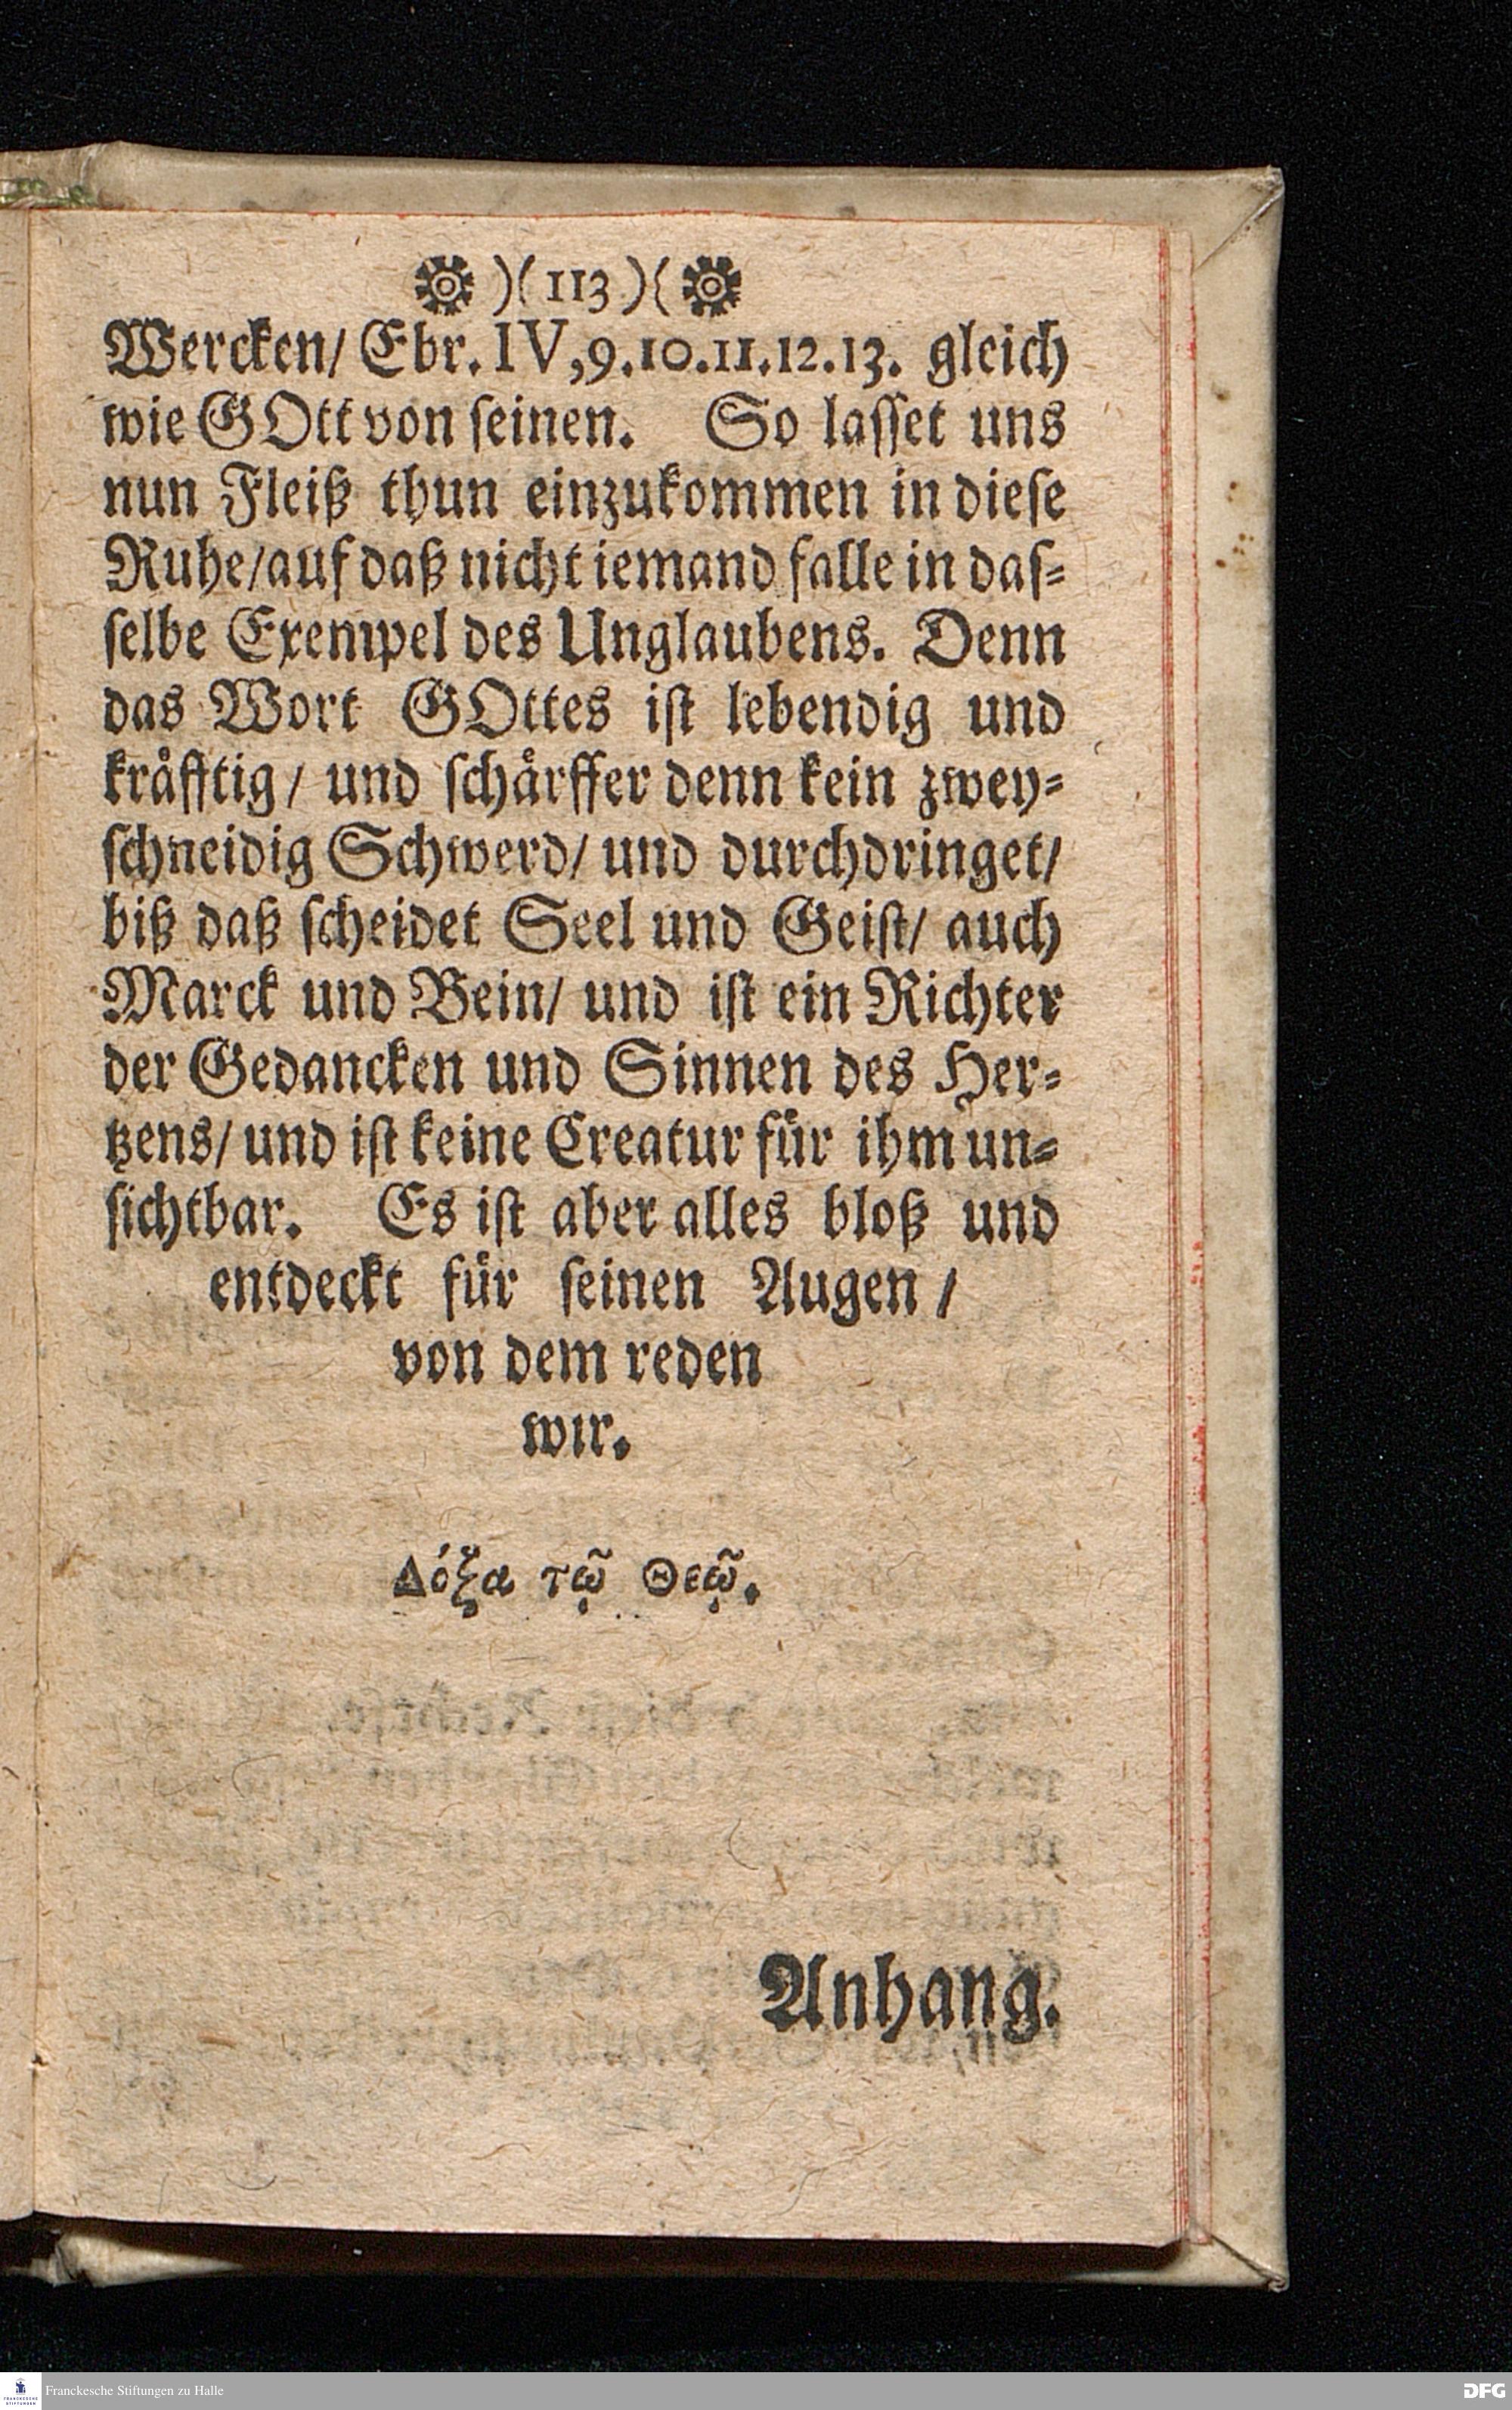 )( 113 )(
Wercken/ Ebr. IV, 9. 10. 11. 12. 13. gleich
wie GOtt von ſeinen. So laſſet uns
nun Fleiß thun einzukommen in dieſe
Ruhe/ auf daß nicht iemand falle in daſ-
ſelbe Exempel des Unglaubens. Denn
das Wort GOttes iſt lebendig und
kraͤfftig/ und ſchaͤrffer denn kein zwey-
ſchneidig Schwerd/ und durchdringet/
biß daß ſcheidet Seel und Geiſt/ auch
Marck und Bein/ und iſt ein Richter
der Gedancken und Sinnen des Her-
tzens/ und iſt keine Creatur fuͤr ihm un-
ſichtbar. Es iſt aber alles bloß und
entdeckt fuͤr ſeinen Augen/
von dem reden
wir.
Δόξα τῷ Θεῷ.
Anhang.
Franckesche Stiftungen zu Halle
DFG